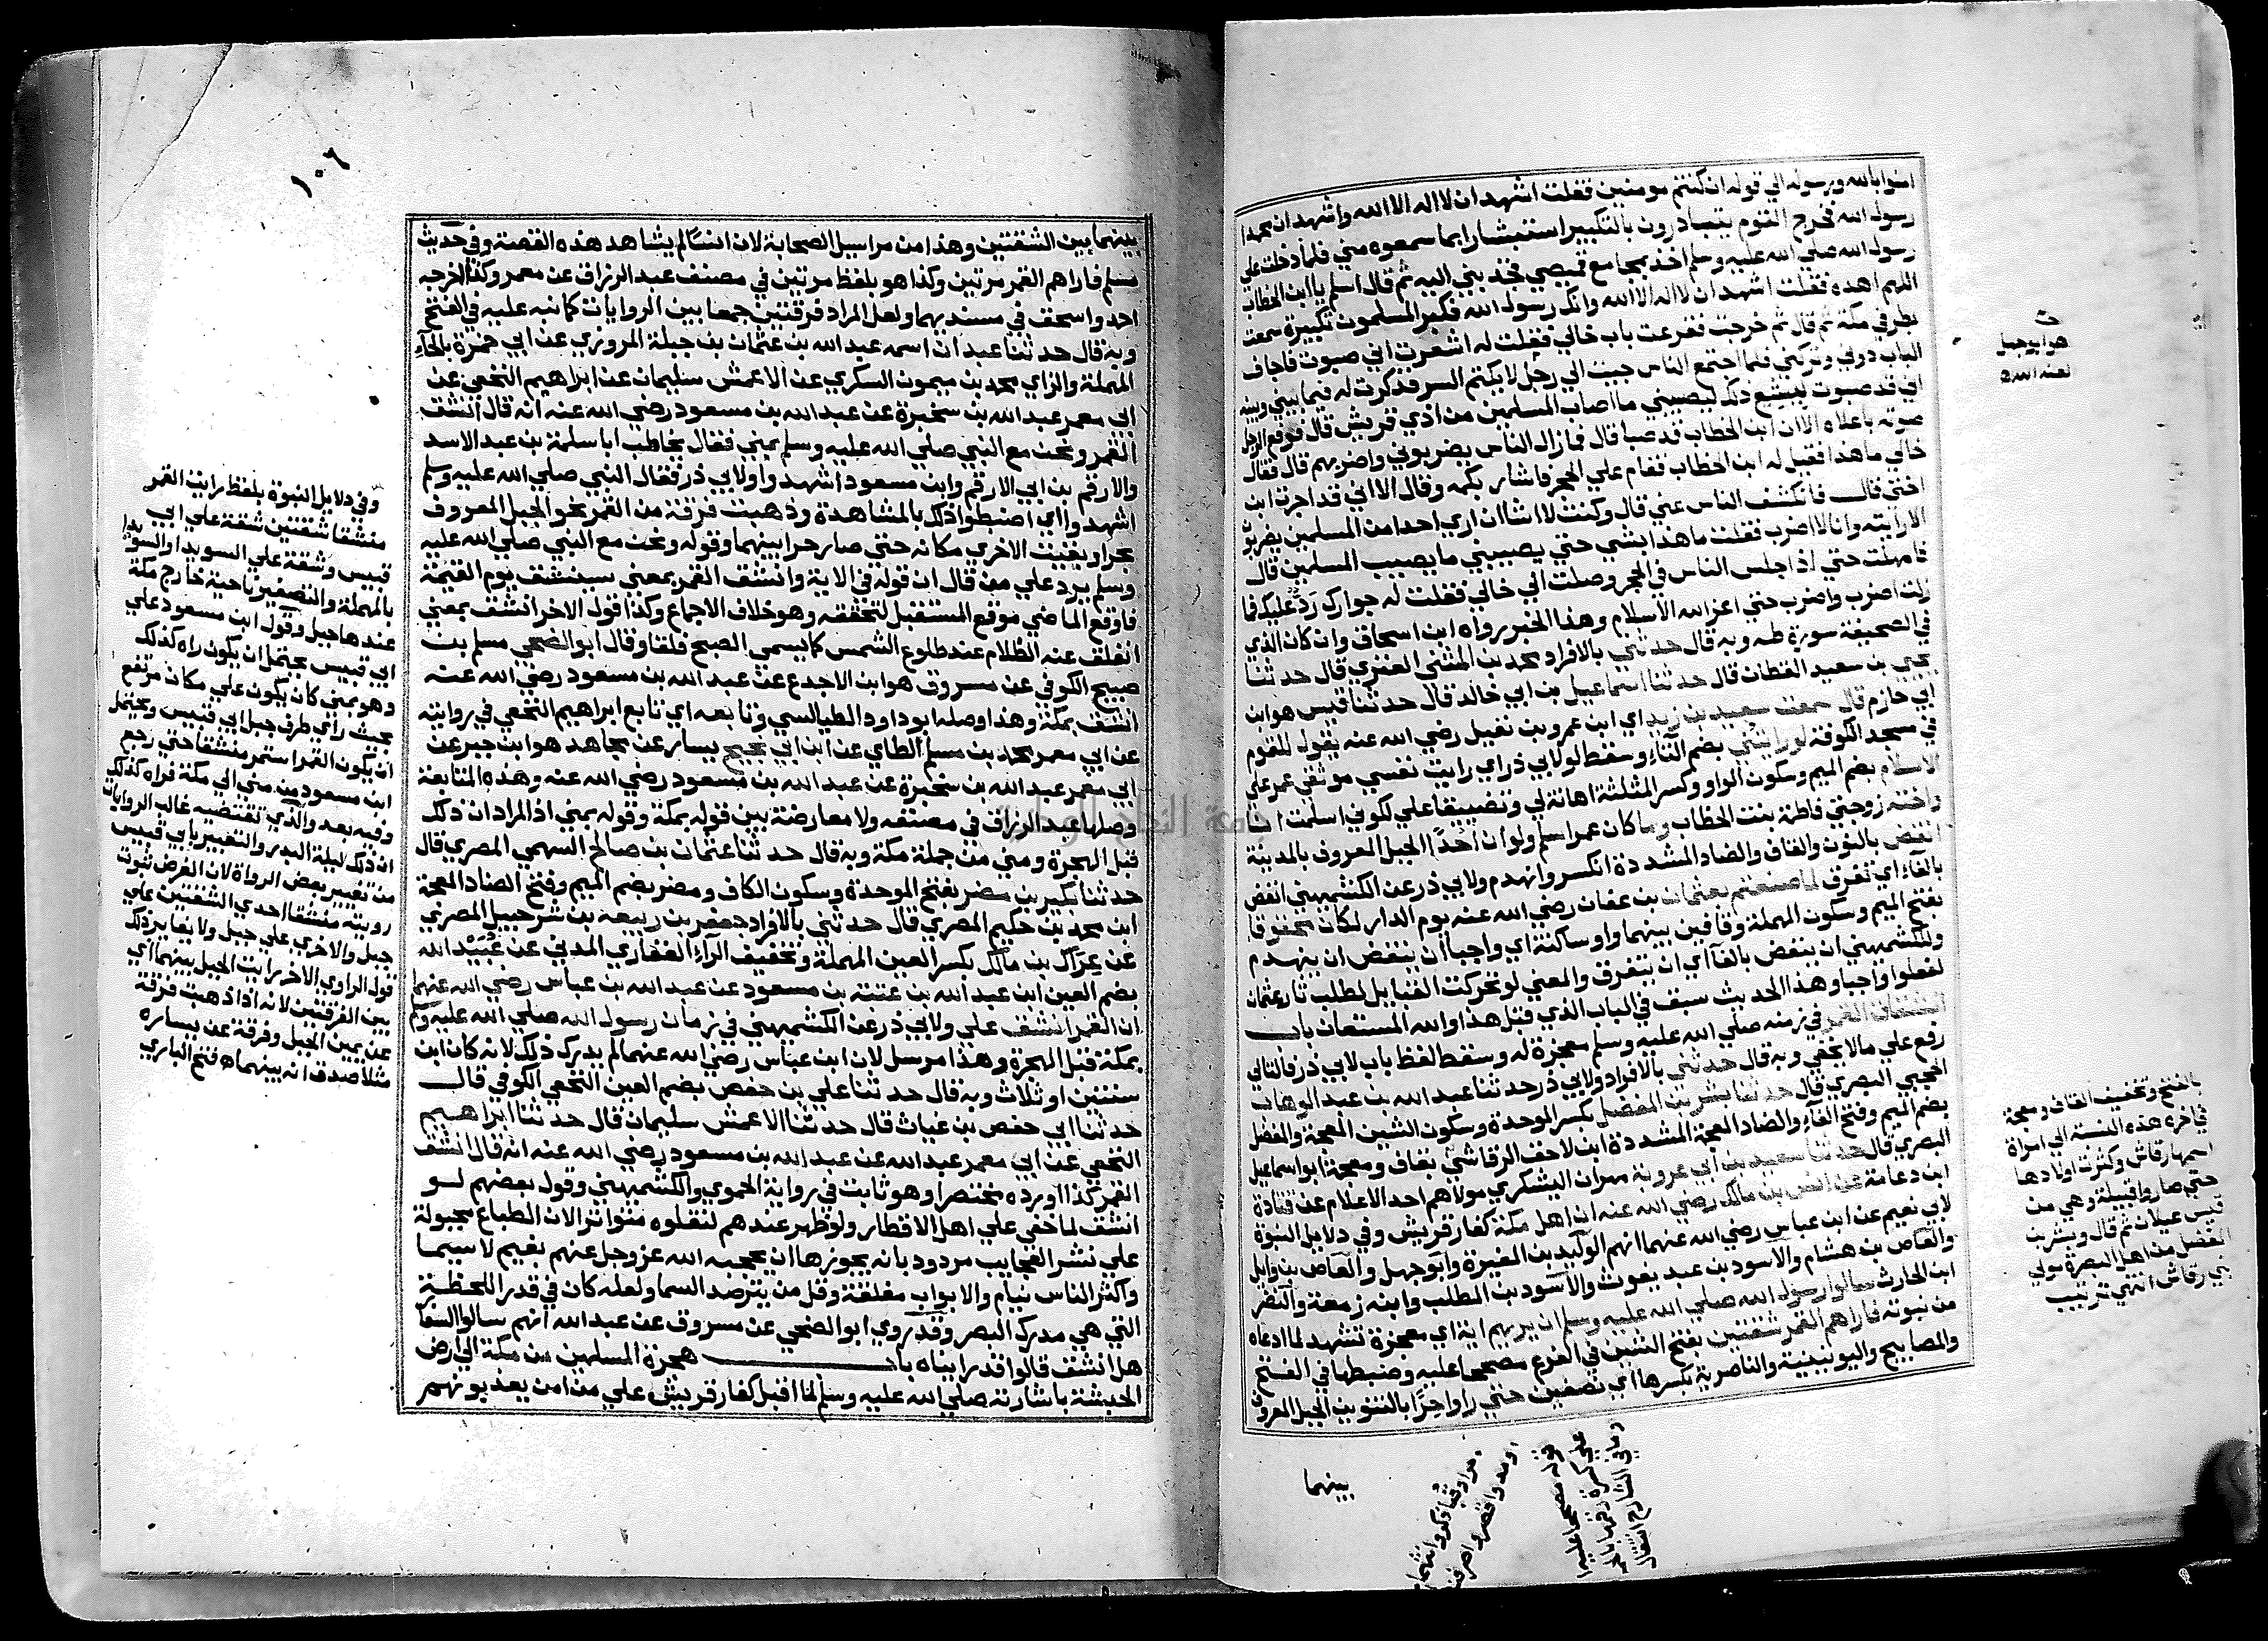 امنوا بالله ورسوله الي قوله ان كنتم مومنين فقلت اشهد ان لا اله الا الله واشهد ان محمدا
رسول الله فخرج القوم يتبادرون بالتكبير استبشارا بما سمعوه مني فلما دخلت علي
رسول الله صلي الله عليه وسلم اخذ بمجامع قميصي فجذبني اليه ثم قال اسلم يا ابن الخطاب
اللهم اهده فقلت اشهد ان لا اله الا الله وانك رسول الله فكبر المسلمون تكبيرة سمعت
بطرق مكة ثم قال ثم خرجت فقرعت باب خالي فقلت له اشعرت اني صبوت فاجاف
الباب دوني وتركني فلما اجتمع الناس جيت الي رجل لا يكتم السر فذكرت له فيما بيني وبينه
اني قد صبوت ليشيع ذلك ليصيبني ما اصاب المسلمين من اذي قريش قال فرفع الرجل
صوته باعلاه الا ان ابن الخطاب قد صبا قال فما زال الناس يضربوني واضربهم قال فقال
خالي ما هذا فقيل له ابن الخطاب فقام علي الحجر فاشار بكمه وقال الا اني قد اجرت ابن
اختي قال فانكشف الناس عني قال وكنت لا اشا ان اري احدا من المسلمين يضرب
الا رايته وانا لا اضرب فقلت ما هذا بشي حتي يصيبني ما يصيب المسلمين قال
فامهلت حتي اذا جلس الناس في الحجر وصلت الي خالي فقلت له جوارك رد عليك فما
زلت اضرب واضرب حتي اعز الله الاسلام وهذا الخبر رواه ابن اسحاق وان كان الذي
في الصحيفة سورة طه وبه قال حدثني بالافراد محمد بن المثني العنزي قال حدثنا
يحيي بن سعيد القطان قال حدثنا اسماعيل بن ابي خالد قال حدثنا قيس هو ابن
ابي حازم قال سمعت سعيد بن زيد اي ابن عمرو بن نفيل رضي الله عنه يقول للقوم
في مسجد الكوفة لو رايتني بضم التاء وسقط لو لابي ذر اي رايت نفسي موثقي عمر علي
الاسلام بضم الميم وسكون الواو وكسر المثلثة اهانة لي وتضييقا علي لكوني اسلمت انا
واخته زوجتي فاطمة بنت الخطاب وما كان عمر اسلم ولو ان احدا الجبل المعروف بالمدينة
انقض بالنون والقاف والضاد المشددة انكسر وانهدم ولابي ذر عن الكشميهني انفض
بالفاء اي تفرق لما صنعتم بعثمان بن عفان رضي الله عنه يوم الدار لكان محقوقا
بفتح الميم وسكون المهملة وقافين بينهما واو ساكنة اي واجبا ان ينقض ان ينهدم
وللكشميهني ان ينفض بالفا اي ان يتفرق والمعني لو تحركت القبايل لطلب ثار عثمان
لفعلوا واجبا وهذا الحديث سبق في الباب الذي قبل هذا والله المستعان باب
انشقاق القمر في زمنه صلي الله عليه وسلم معجزة له وسقط لفظ باب لابي ذر فالتالي
رفع علي ما لا يخفي وبه قال حدثني بالافراد ولابي ذر حدثنا عبد الله بن عبد الوهاب
الحجبي البصري قال حدثنا بشر بن المفضل بكسر الموحدة وسكون الشين المعجمة والمفضل
بضم الميم وفتح الفاء والضاد المعجمة المشددة ابن لاحق الرقاشي بقاف ومعجمة ابو اسماعيل
البصري قال حدثنا سعيد بن ابي عروبة مهران اليشكري مولاهم احد الاعلام عن قتادة
ابن دعامة عن انس بن مالك رضي الله عنه ان اهل مكة كفار قريش وفي دلايل النبوة
لابي نعيم عن ابن عباس رضي الله عنهما انهم الوليد بن المغيرة وابو جهل والعاص بن وايل
والعاص بن هشام والاسود بن عبد يغوث والاسود بن المطلب وابنه زمعة والنضر
ابن الحارث سالوا رسول الله صلي الله عليه وسلم ان يريهم اية اي معجزة تشهد لما ادعاه
من نبوته فاراهم القمر شقتين بفتح الشين في الفرع مصححا عليه وضبطها في الفتح
والمصابيح واليونينية والناصرية بكسرها اي نصفين حتي راوا حرا بالتنوين الجبل المعروف
بينهما
هو ابو جهل
لعنه الله
بالفتح وتخفيف القاف ومعجمة
في اخره هذه النسبة الي امراة
اسمها رقاش وكثرت اولادها
حتي صاروا قبيلة وهي من
قيس عيلان ثم قال وبشر بن
المفضل من اهل البصرة مولي
بني رقاش انتهي ترتيب
قوله مصححا عليه
١٠٦
بينهما بين الشقتين وهذا من مراسيل الصحابة لان انسا لم يشاهد هذه القصة وفي حديث
مسلم فاراهم القمر مرتين وكذا هو بلفظ مرتين في مصنف عبد الرزاق عن معمر وكذا اخرجه
احمد واسحق في مسنديهما ولعل المراد فرقتين جمعا بين الروايات كما نبه عليه في الفتح
وبه قال حدثنا عبدان اسمه عبد الله بن عثمان بن جبلة المروزي عن ابي حمزة بالحاء
المهملة والزاي محمد بن ميمون السكري عن الاعمش سليمان عن ابراهيم النخعي عن
ابي معمر عبد الله بن سخبرة عن عبد الله بن مسعود رضي الله عنه انه قال انشق
القمر ونحن مع النبي صلي الله عليه وسلم بمني فقال يخاطب ابا سلمة بن عبد الاسد
والارقم بن ابي الارقم وابن مسعود اشهدوا ولابي ذر فقال النبي صلي الله عليه وسلم
اشهدوا اي اضبطوا ذلك بالمشاهدة وذهبت فرقة من القمر نحو الجبل المعروف
بحرا وبقيت الاخري مكانه حتي صار حرا بينهما وقوله ونحن مع النبي صلي الله عليه
وسلم يرد علي من قال ان قوله في الاية وانشق القمر بمعني سينشق يوم القيمة
فاوقع الماضي موقع المستقبل لتحققه وهو خلاف الاجماع وكذا قول الاخر انشق بمعني
انفلق عنه الظلام عند طلوع الشمس كما يسمي الصبح فلقا وقال ابو الضحي مسلم بن
صبيح الكوفي عن مسروق هو ابن الاجدع عن عبد الله بن مسعود رضي الله عنه
انشق بمكة وهذا وصله ابو داود الطيالسي وتابعه اي تابع ابراهيم النخعي في روايته
عن ابي معمر محمد بن مسلم الطاي عن ابن ابي نجيح يسار عن مجاهد هو ابن جبر عن
ابي معمر عبد الله بن سخبرة عن عبد الله بن مسعود رضي الله عنه وهذه المتابعة
وصلها عبد الرزاق في مصنفه ولا معارضة بين قوله بمكة وقوله بمني اذ المراد ان ذلك
قبل الهجرة ومني من جملة مكة وبه قال حدثنا عثمان بن صالح السهمي المصري قال
حدثنا بكير بن مضر بفتح الموحدة وسكون الكاف ومضر بضم الميم وفتح الضاد المعجمة
ابن محمد بن حكيم المصري قال حدثني بالافراد جعفر بن ربيعة بن شرحبيل المصري
عن عراك بن مالك بكسر العين المهملة وتخفيف الراء الغفاري المدني عن عبيد الله
بضم العين ابن عبد الله بن عتبة بن مسعود عن عبد الله بن عباس رضي الله عنهما
ان القمر انشق علي ولابي ذر عن الكشميهني في زمان رسول الله صلي الله عليه وسلم
بمكة قبل الهجرة وهذا مرسل لان ابن عباس رضي الله عنهما لم يدرك ذلك لانه كان ابن
سنتين او ثلاث وبه قال حدثنا علي بن حفص بضم العين النخعي الكوفي قال
حدثنا ابي حفص بن غياث قال حدثنا الاعمش سليمان قال حدثنا ابراهيم
النخعي عن ابي معمر عبد الله عن عبد الله بن مسعود رضي الله عنه انه قال انشق
القمر كذا اورده مختصرا وهو ثابت في رواية الحموي والكشميهني وقول بعضهم لو
انشق لما خفي علي اهل الاقطار ولو ظهر عندهم لنقلوه متواترا لان الطباع مجبولة
علي نشر العجايب مردود بانه يجوز ها ان يحجبه الله عز وجل عنهم بغيم لا سيما
واكثر الناس نيام والابواب مغلقة وقل من يترصد السما ولعله كان في قدر اللحظة
التي هي مدرك البصر وقد روي ابو الضحي عن مسروق عن عبد الله انهم سالوا السفار
هل انشق قالوا قد رايناه باب هجرة المسلمين من مكة الي ارض
الحبشة باشارته صلي الله عليه وسلم لما اقبل كفار قريش علي من امن يعذبونهم
وفي دلايل النبوة بلفظ رايت القمر
منشقا شقتين شقة علي ابي
قبيس وشقة علي السويدا والسويدا
بالمهملة والتصغير ناحية خارج مكة
عندها جبل وقول ابن مسعود علي
ابي قبيس يحتمل ان يكون راه كذلك
وهو بمني كان يكون علي مكان مرتفع
بحيث راي طرف جبل ابي قبيس ويحتمل
ان يكون القمر استمر منشقا حتي رجع
ابن مسعود من مني الي مكة فراه كذلك
وفيه بعد والذي تقتضيه غالب الروايات
ان ذلك ليلة البدر والتعبير بابي قبيس
من تغيير بعض الرواة لان الغرض ثبوت
رويته منشقا احدي الشقتين علي
جبل والاخري علي جبل ولا يغاير ذلك
قول الراوي الاخر رايت الجبل بينهما اي
بين الفرقتين لانه اذا ذهبت فرقة
عن يمين الجبل وفرقة عن يساره
مثلا صدق انه بينهما اه فتح الباري